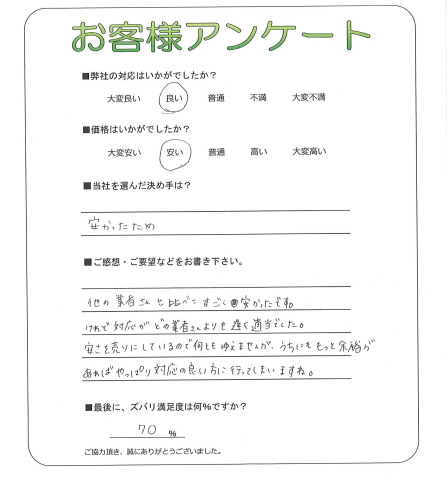 お客様アンケート
■弊社の対応はいかがでしたか？
大変良い 良い 普通 不満 大変不満
■価格はいかがでしたか？
大変安い 安い 普通 高い 大変高い
■当社を選んだ決め手は？
安かったため
■ご感想・ご要望などをお書き下さい。
他の業者さんと比べてすごく安かったです。
けれど対応がどの業者さんよりも遅く適当でした。
安さを売りにしているので何とも申えませんが、うちにももっと余裕が
あればやっぱり対応の良い方に行ってしまいますね。
■最後に、ズバリ満足度は何%ですか？
70 %
ご協力頂き、誠にありがとうございました。